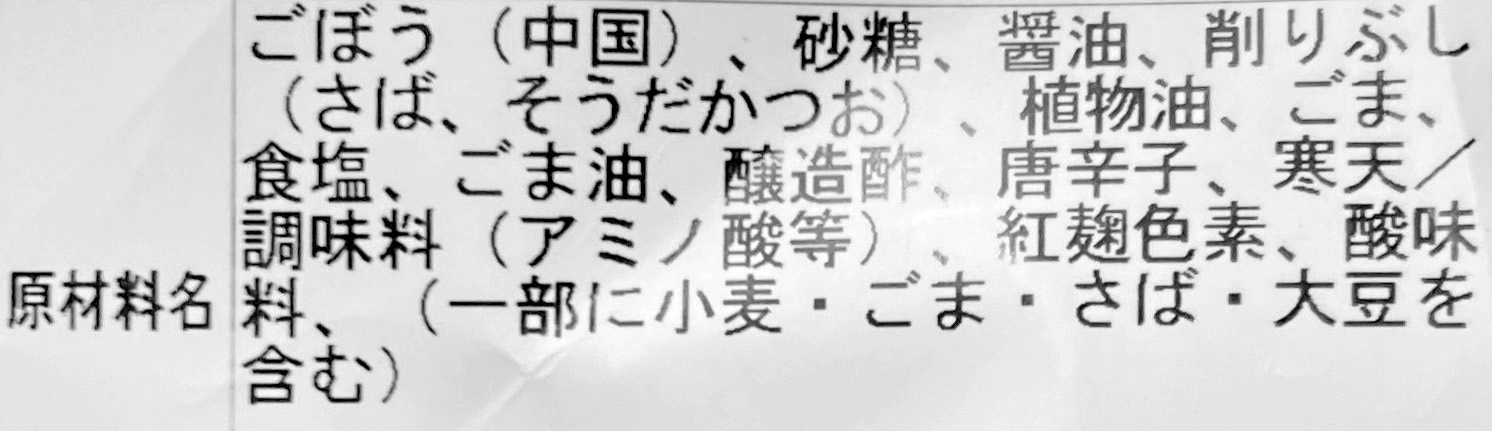 原材料名
ごぼう（中国）、砂糖、醤油、削りぶし
（さば、そうだかつお）、植物油、ごま、
食塩、ごま油、醸造酢、唐辛子、寒天／
調味料（アミノ酸等）、紅麹色素、酸味
料、（一部に小麦・ごま・さば・大豆を
含む）